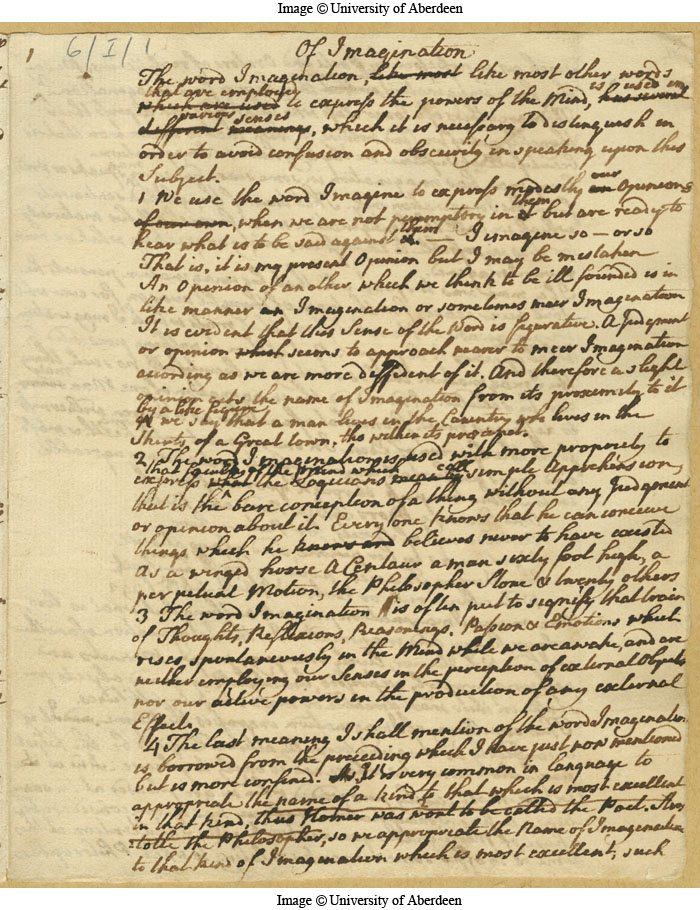 Image © University of Aberdeen
1
6/I/1
Of Imagination
The word Imagination, like most like most other words
that are employed is used in
which are used to express the powers of the Mind, has several
various senses
different meanings, which it is necessary to distinguish in
order to avoid confusion and obscurity in speaking upon this
Subject.
1 We use the word Imagine to express modestly an our Opinions
of our own, when we are not peremptory in it them but are ready to
hear what is to be said against it. them — I imagine so — or so
That is, it is my present Opinion but I may be mistaken
An Opinion of another which we think to be ill founded is in
like manner an Imagination or sometimes meer Imagination
It is evident that this Sense of the Word is figurative. A Judgment
or opinion which seems to approach nearer to meer Imagination
according as we are more diffident of it. And therefore a slight
opinion gets the name of Imagination from its proximity to it
by a like figure
we say that a man lives in the Country who lives in the
Skirts of a Great town, tho within its precinct.
2 The word Imagination is used with more propriety to
that power of the mind which
express what the Logicians mean by call simple Apprehension,
that is the bare conception of a thing without any Judgment
or opinion about it. Every one knows that he can conceive
things which he knows and believes never to have existed
As a winged horse A Centaur a man sixty foot high, a
perpetual Motion, the Philosopher Stone & twenty others
3 The word Imagination is often put to signify that train
of Thoughts, Reflexions, Reasonings, Passions & Emotions which
rises spontaneously in the Mind while we are awake, and are
neither employing our Senses in the perception of external Objects
nor our active powers in the production of any external
Effect.
4 The last meaning I shall mention of the word Imagination
is borrowed from the preceeding which I have just now mentioned
but is more confined. It is very common in language to
appropriate the name of a kind to that which is most excellent
in that kind, thus Homer was wont to be called the Poet. Aris
totle the Philosopher, so we appropriate the Name of Imagination
to that kind of Imagination which is most excellent, such
Image © University of Aberdeen